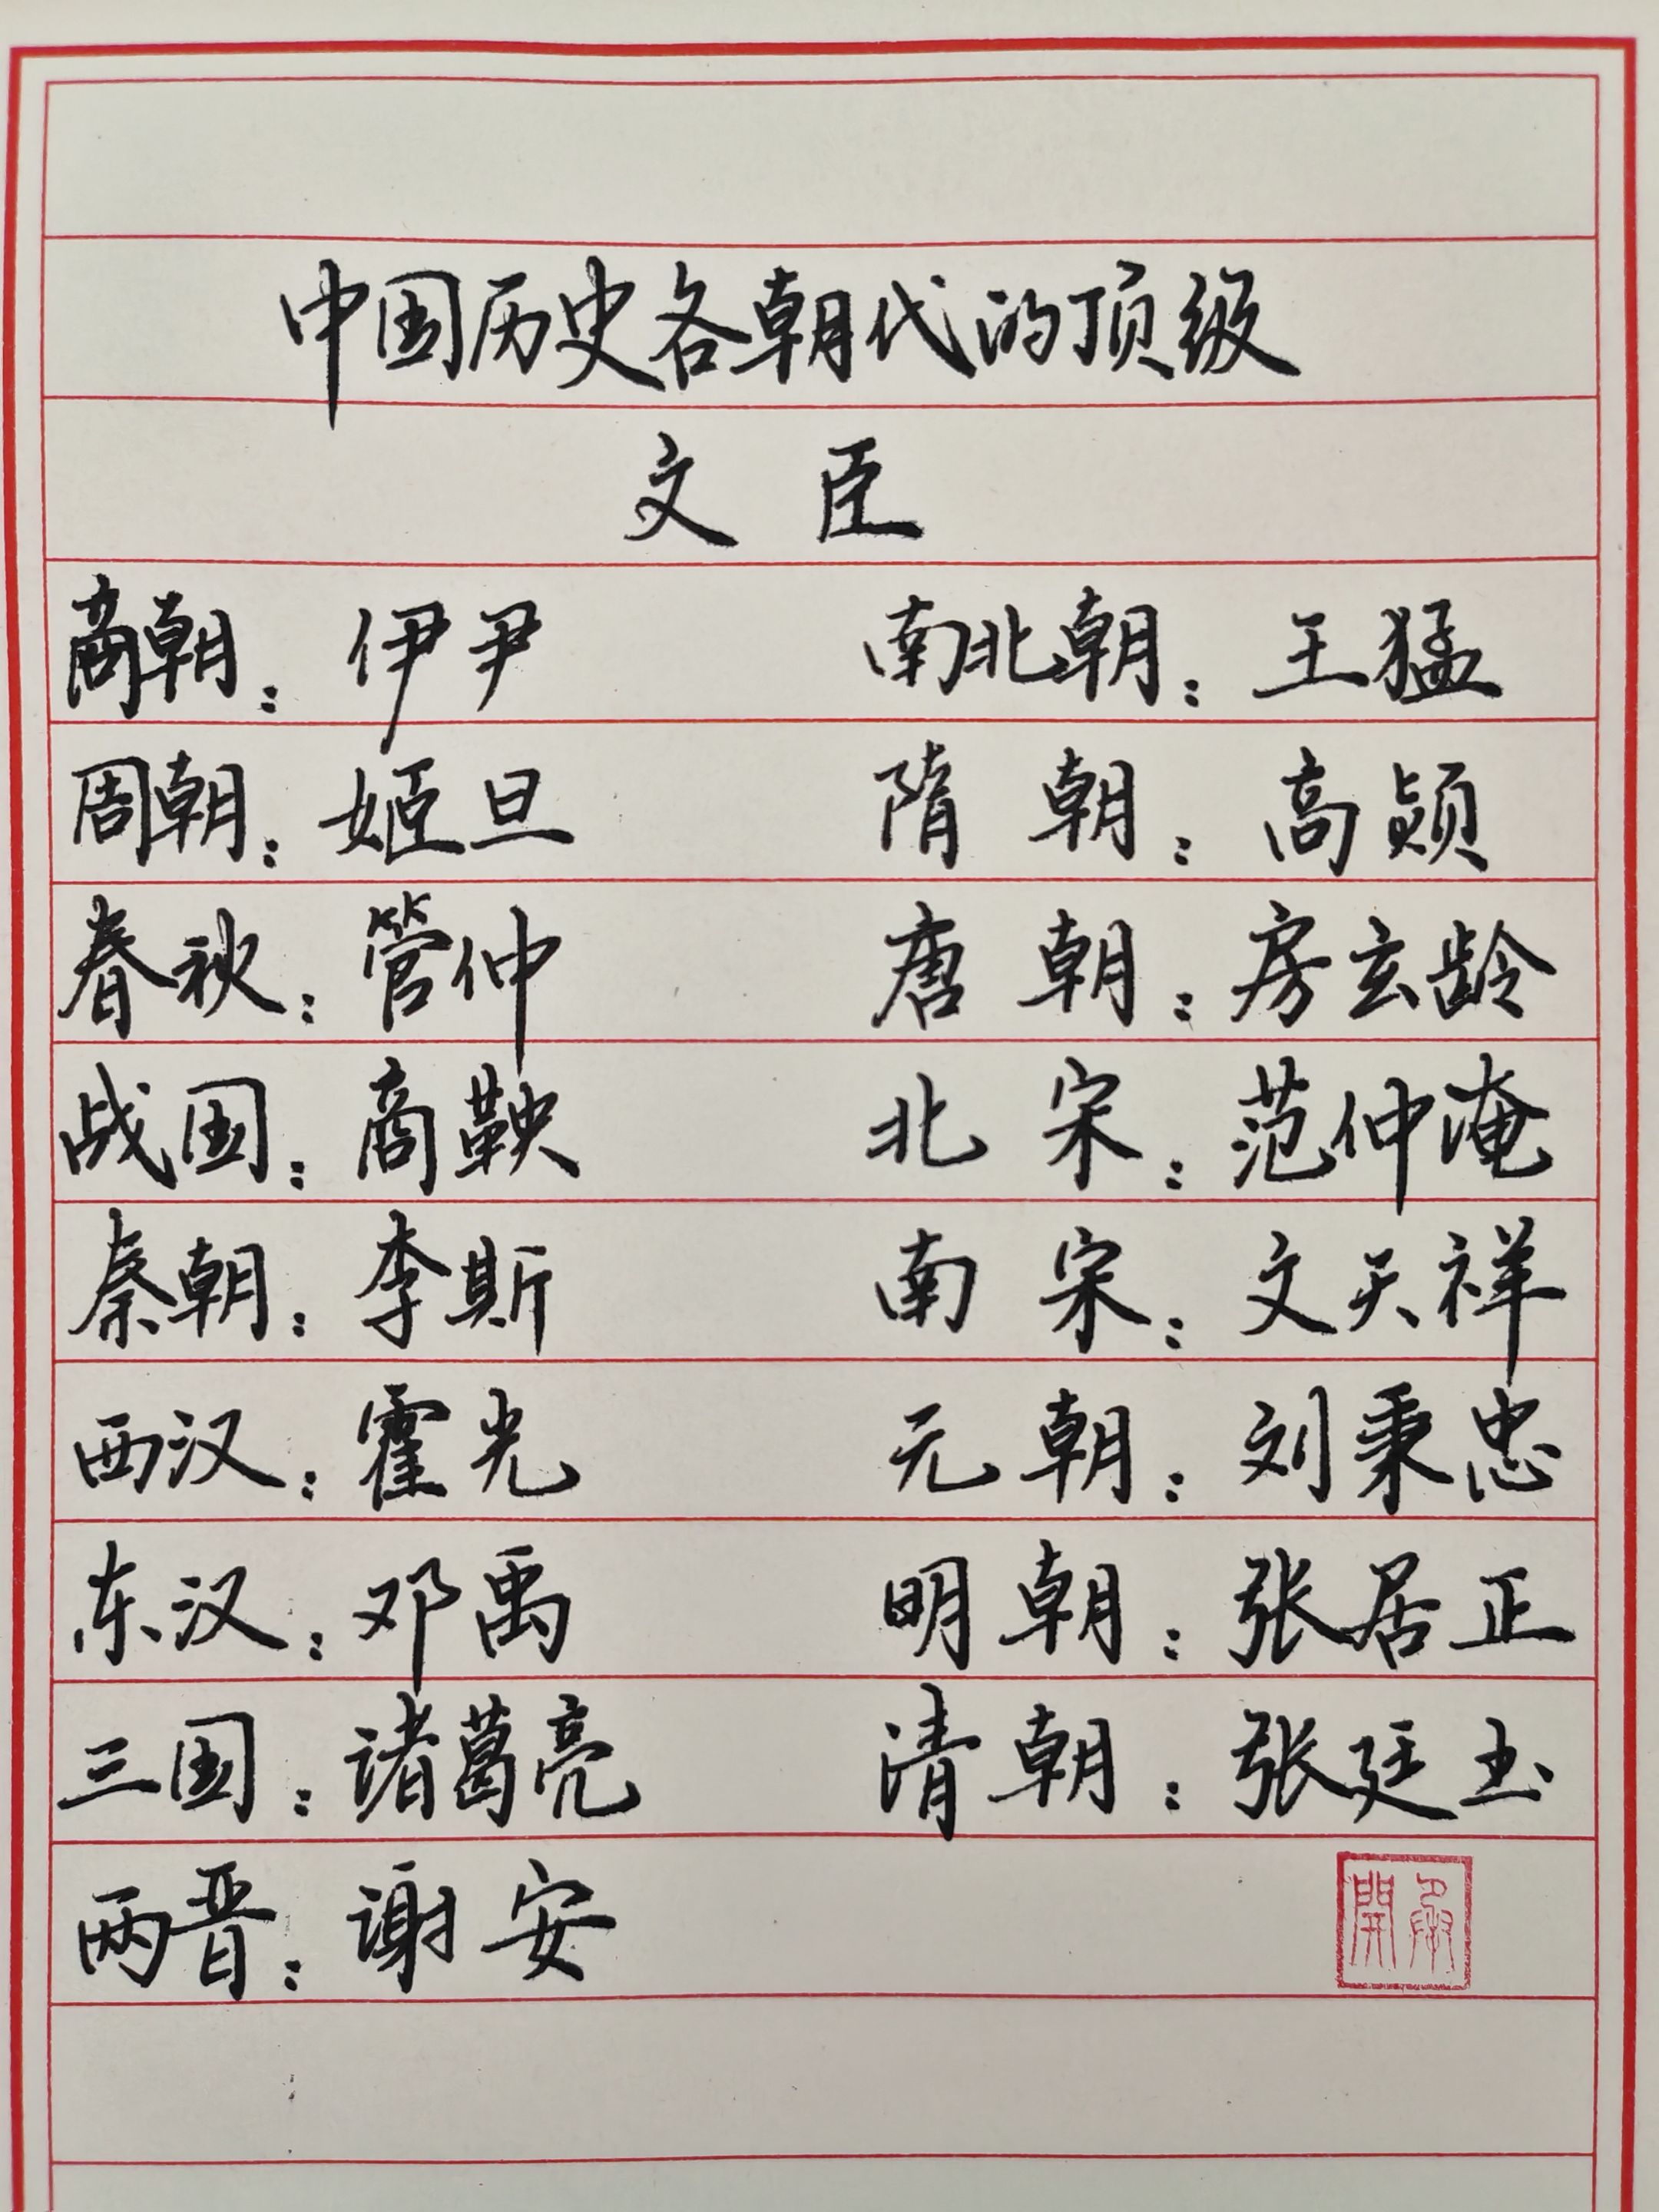 中国历史各朝代的顶级
文臣
商朝：伊尹 南北朝：王猛
周朝：姬旦 隋朝：高颎
春秋：管仲 唐朝：房玄龄
战国：商鞅 北宋：范仲淹
秦朝：李斯 南宋：文天祥
西汉：霍光 元朝：刘秉忠
东汉：邓禹 明朝：张居正
三国：诸葛亮 清朝：张廷玉
两晋：谢安